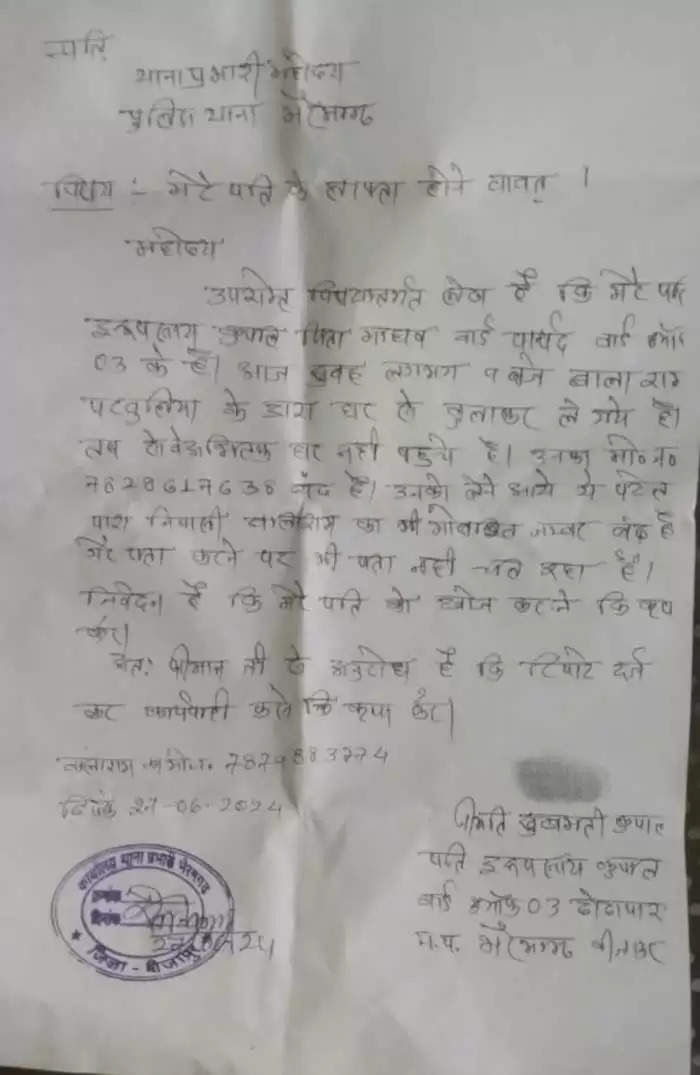 प्रति
थाना प्रभारी महोदय
पुलिस थाना भैरमगढ़
विषय :- मेरे पति के लापता होने बावत् ।
महोदय
उपरोक्त विषयान्तर्गत लेख है कि मेरे पति
कुपाल पिता माधव वार्ड पार्षद वार्ड क्रमांक
03 के है। आज सुबह लगभग 9 बजे बालाराम
के द्वारा घर से बुलाकर ले गये है।
तब से घर नही पहुचे है। उनका मो० न०
7828617638 बंद है। उनको लेने आये थे पटेल
पारा निवासी बालाराम का भी मोबाईल नम्बर बंद है
मेरे पता करने पर भी पता नही चल रहा है।
निवेदन है कि मेरे पति को खोज करने कि कृपा
करें।
अतः श्रीमान जी से अनुरोध है कि रिपोर्ट दर्ज
कर कार्यवाही करने कि कृपा करें।
बालाराम का मो०न. 7879883774
दिनांक 27-06-2024
श्रीमति सुखमती कुपाल
पति कुपाल
वार्ड क्रमांक 03 ढोढापार
न.प. भैरमगढ़ बीजापुर
कार्यालय थाना प्रभारी भैरमगढ़
क्रमांक
दिनांक
जिला - बीजापुर